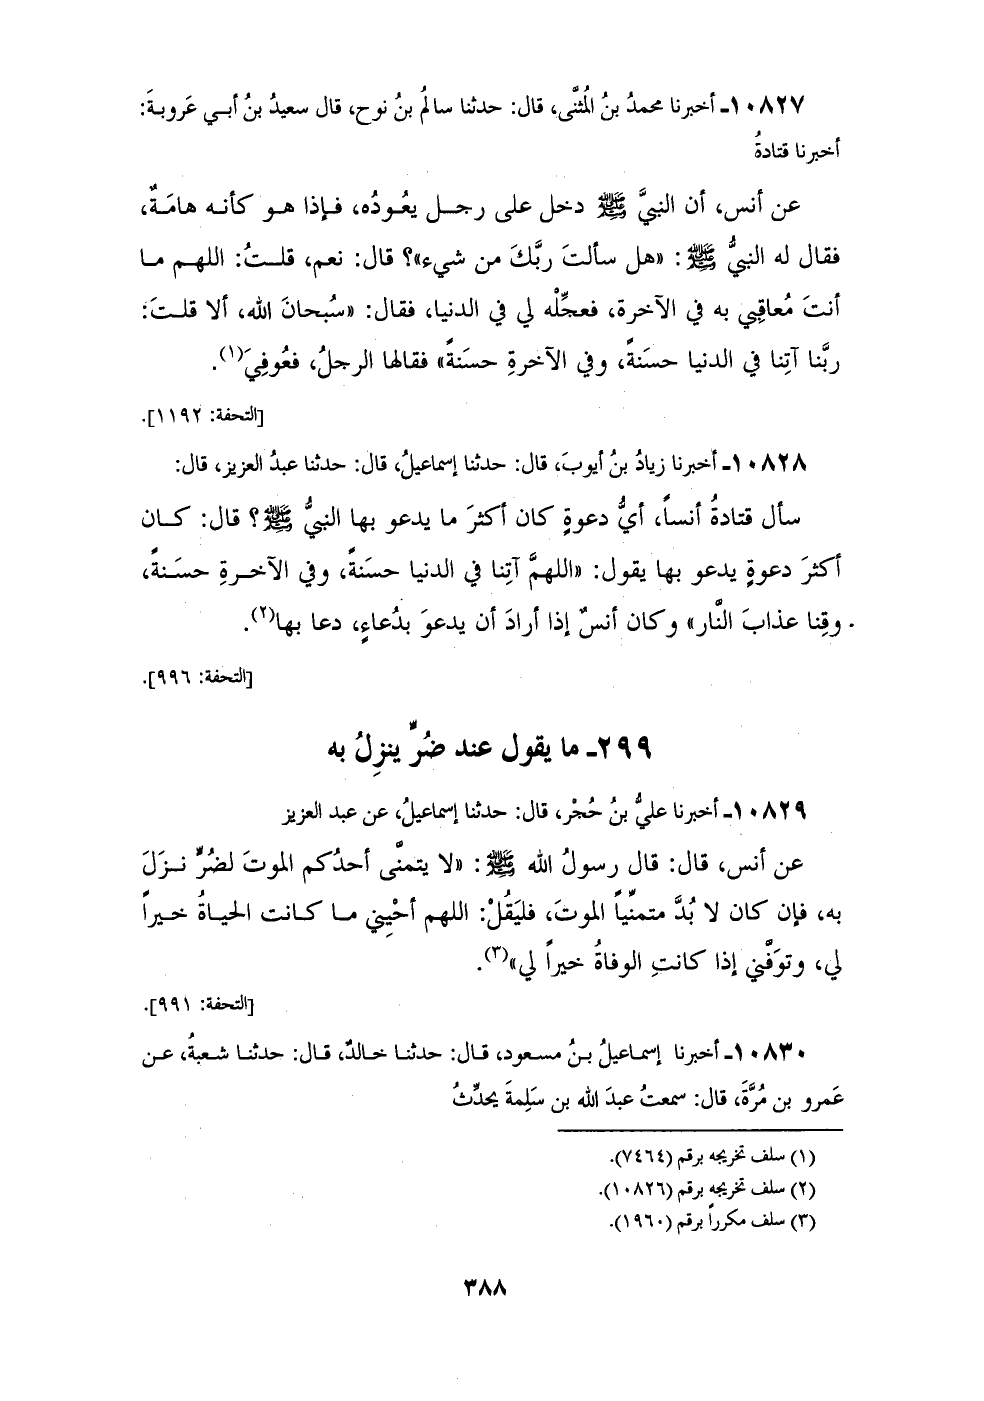 ١٠٨٢٧ـ أخبرنا محمدُ بنُ المُثنَّى، قال: حدثنا سالمُ بنُ نوح، قال سعيدُ بنُ أبي عَروبةَ:
أخبرنا قتادةُ
عن أنس، أن النبيَّ ﷺ دخل على رجل يعُودُه، فإذا هو كأنه هامَةٌ،
فقال له النبيُّ ﷺ: «هل سألتَ ربَّكَ من شيء»؟ قال: نعم، قلتُ: اللهم ما
أنتَ مُعاقِبِي به في الآخرة، فعجِّلْه لي في الدنيا، فقال: «سُبحانَ الله، ألا قلتَ:
ربَّنا آتِنا في الدنيا حسَنةً، وفي الآخرةِ حسَنةً» فقالها الرجلُ، فعُوفِيَ(١).
[التحفة: ١١٩٢].
١٠٨٢٨ـ أخبرنا زيادُ بنُ أيوبَ، قال: حدثنا إسماعيلُ، قال: حدثنا عبدُ العزيز، قال:
سأل قتادةُ أنساً، أيُّ دعوةٍ كان أكثرَ ما يدعو بها النبيُّ ﷺ؟ قال: كان
أكثرَ دعوةٍ يدعو بها يقول: «اللهمَّ آتِنا في الدنيا حسَنةً، وفي الآخرةِ حسَنةً،
وقِنا عذابَ النَّار» وكان أنسٌ إذا أرادَ أن يدعوَ بدُعاءٍ، دعا بها(٢).
[التحفة: ٩٩٦].
٢٩٩ـ ما يقول عند ضُرٍّ ينزِلُ به
١٠٨٢٩ـ أخبرنا عليُّ بنُ حُجْر، قال: حدثنا إسماعيلُ، عن عبد العزيز
عن أنس، قال: قال رسولُ الله ﷺ: «لا يتمنَّى أحدُكم الموتَ لضُرٍّ نزَلَ
به، فإن كان لا بُدَّ متمنِّياً الموتَ، فليَقُلْ: اللهم أحْيِني ما كانت الحياةُ خيراً
لي، وتوَفَّني إذا كانتِ الوفاةُ خيراً لي»(٣).
[التحفة: ٩٩١].
١٠٨٣٠ـ أخبرنا إسماعيلُ بنُ مسعود، قال: حدثنا خالدٌ، قال: حدثنا شعبةُ، عن
عَمرو بن مُرَّةَ، قال: سمعتُ عبدَ الله بن سَلِمةَ يحدِّثُ
(١) سلف تخريجه برقم (٧٤٦٤).
(٢) سلف تخريجه برقم (١٠٨٢٦).
(٣) سلف مكرراً برقم (١٩٦٠).
٣٨٨